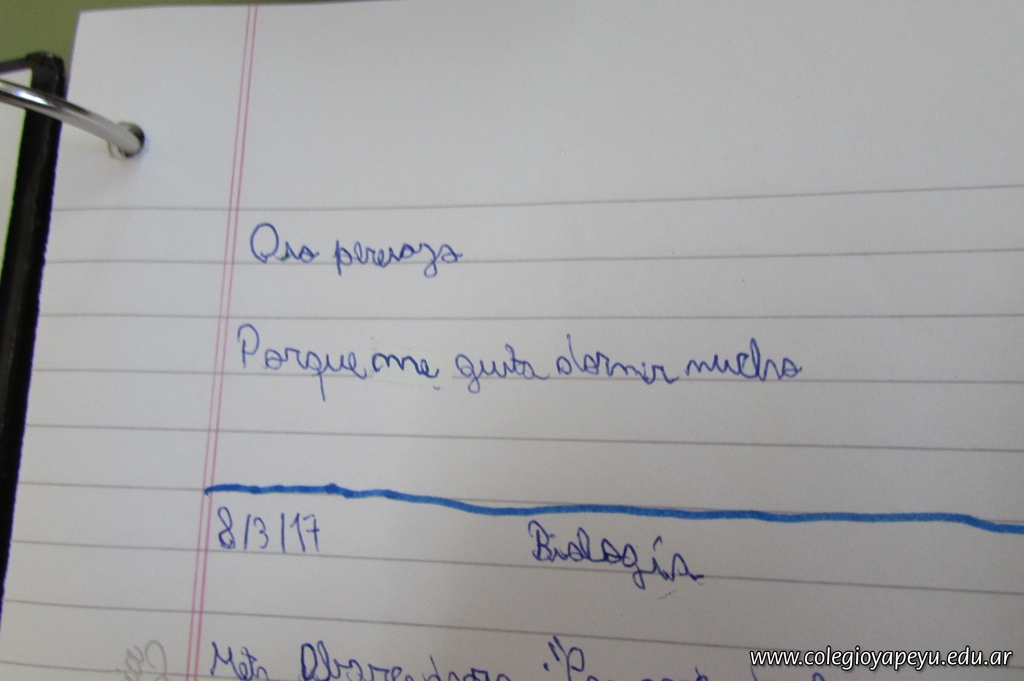 Oso perezozo
Porque me gusta dormir mucho
8/3/17 Biología
Meta
www.colegioyapeyu.edu.ar